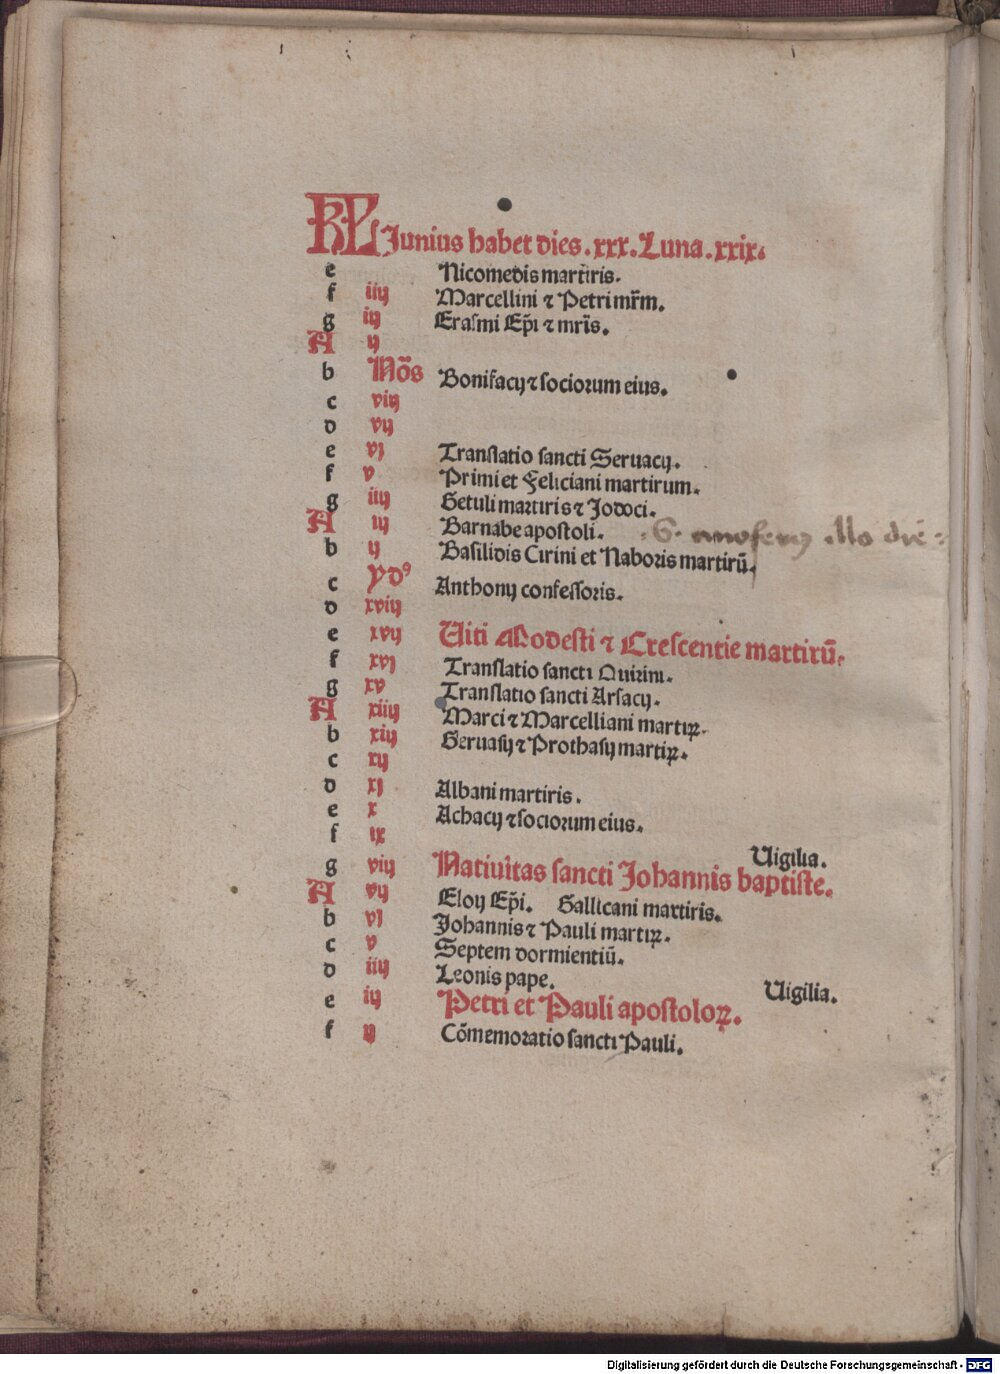 KL Junius habet dies .xxx. Luna .xxix.
e Nicomedis martiris.
f iiij Marcellini ⁊ Petri mr̄m.
g iij Erasmi Ep̄i ⁊ mr̄is.
A ij
b Nōs Bonifacij ⁊ sociorum eius.
c viij
d vij
e vj Translatio sancti Seruacij.
f v Primi et Feliciani martirum.
g iiij Getuli martiris ⁊ Jodoci.
A iij Barnabe apostoli. . S. onofery illo die :
b ij Basilidis Cirini et Naboris martirū.
c ydꝰ Anthonij confessoris.
d xviij
e xvij Uiti Modesti ⁊ Crescentie martirū.
f xvj Translatio sancti Quirini.
g xv Translatio sancti Arsacij.
A xiiij Marci ⁊ Marcelliani martiꝝ.
b xiij Geruasij ⁊ Prothasij martiꝝ.
c xij
d xj Albani martiris.
e x Achacij ⁊ sociorum eius.
f ix Uigilia.
g viij Natiuitas sancti Johannis baptiste.
A vij Eloy Ep̄i. Gallicani martiris.
b vj Johannis ⁊ Pauli martiꝝ.
c v Septem dormientiū.
d iiij Leonis pape. Uigilia.
e iij Petri et Pauli apostoloꝝ.
f ij Cōmemoratio sancti Pauli.
Digitalisierung gefördert durch die Deutsche Forschungsgemeinschaft - DFG